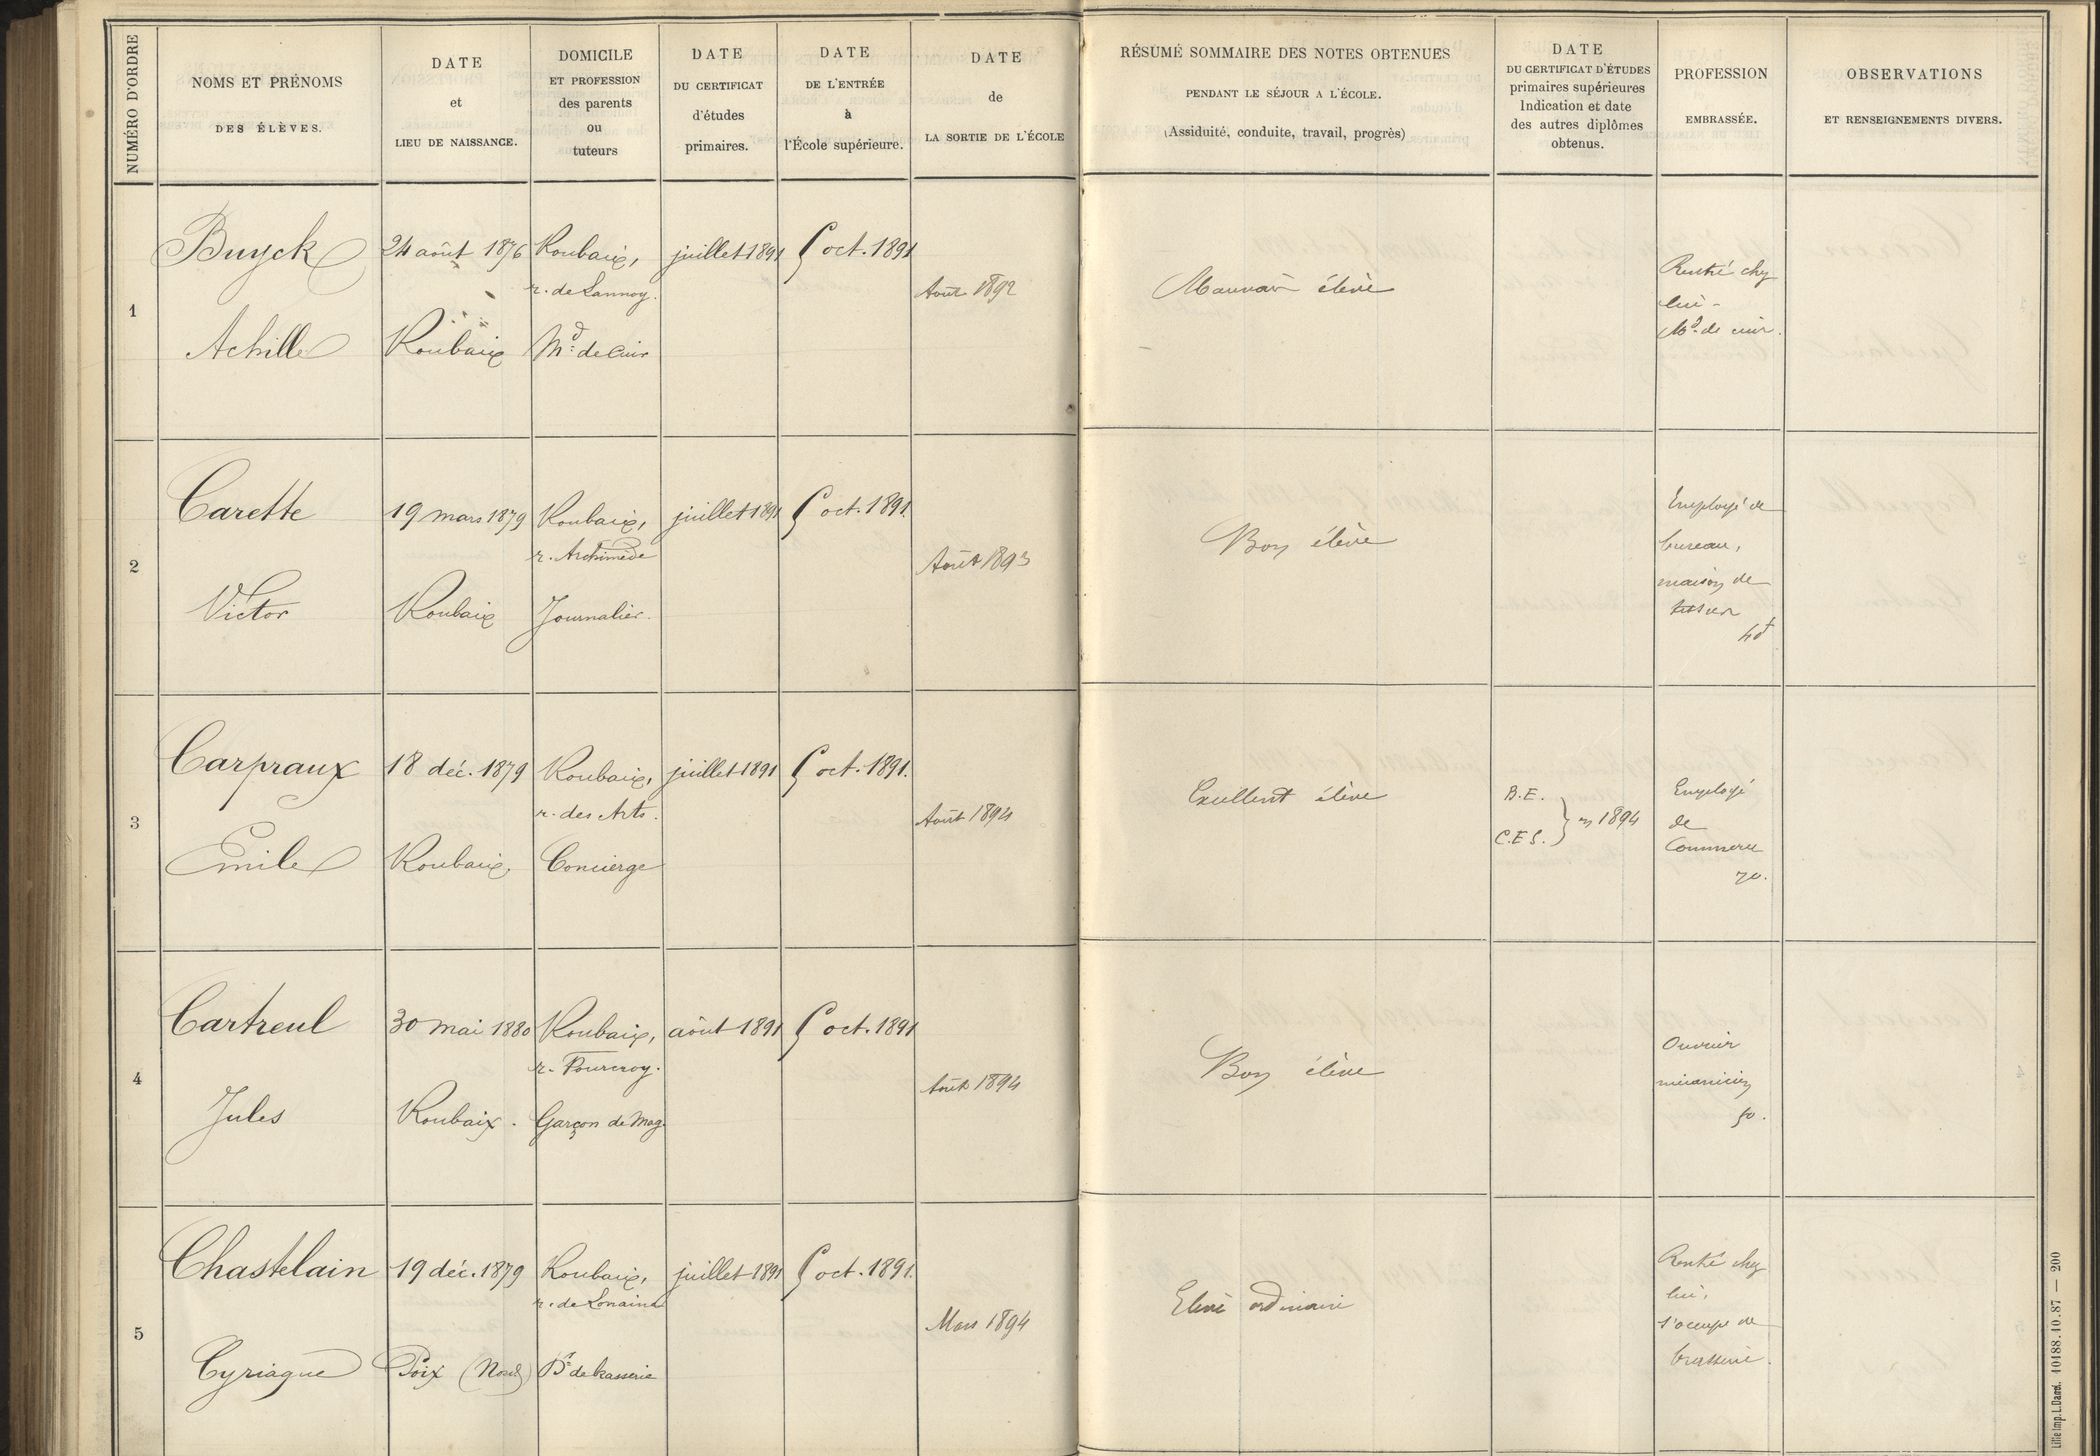 NUMÉRO D'ORDRE
NOMS ET PRÉNOMS
DES ÉLÈVES.
DATE
et
LIEU DE NAISSANCE.
DOMICILE
ET PROFESSION
des parents
ou
tuteurs
DATE
DU CERTIFICAT
d'études
primaires.
DATE
DE L'ENTRÉE
à
l'École supérieure.
DATE
de
LA SORTIE DE L'ÉCOLE
RÉSUMÉ SOMMAIRE DES NOTES OBTENUES
PENDANT LE SÉJOUR A L'ÉCOLE.
(Assiduité, conduite, travail, progrès)
DATE
DU CERTIFICAT D'ÉTUDES
primaires supérieures
Indication et date
des autres diplômes
obtenus.
PROFESSION
EMBRASSÉE.
OBSERVATIONS
ET RENSEIGNEMENTS DIVERS.
1
Buyck
Achille
24 août 1876
Roubaix
Roubaix,
r. de Lannoy.
Md. de Cuir
juillet 1891
5 oct. 1891
Août 1892
Mauvais élève
Rentré chez
lui -
Md. de cuir.
2
Carette
Victor
19 mars 1879
Roubaix
Roubaix,
r. Archimède
Journalier.
juillet 1891
5 oct. 1891.
Août 1893
Bon élève
Employé de
bureau,
maison de
tissus
3
Carpraux
Emile
18 déc. 1879
Roubaix.
Roubaix,
r. des Arts.
Concierge
juillet 1891
5 oct. 1891.
Août 1894
Excellent élève
B.E.
C.E.S. } en 1894
Employé
de
Commerce
70.
4
Cartreul
Jules
30 mai 1880
Roubaix.
Roubaix,
r. Fourcroy.
Garçon de Mag.
août 1891
5 oct. 1891
Août 1894
Bon élève
Ouvrier
mécanicien
50.
5
Chastelain
Cyriaque
19 déc. 1879
Poix (Nord)
Roubaix,
r. de Lorraine
de brasserie
juillet 1891
5 oct. 1891.
Mars 1894
Elève ordinaire
Rentré chez
lui,
s'occupe de
brasserie.
Lille Imp. L. Danel. 40188.10.87 — 200